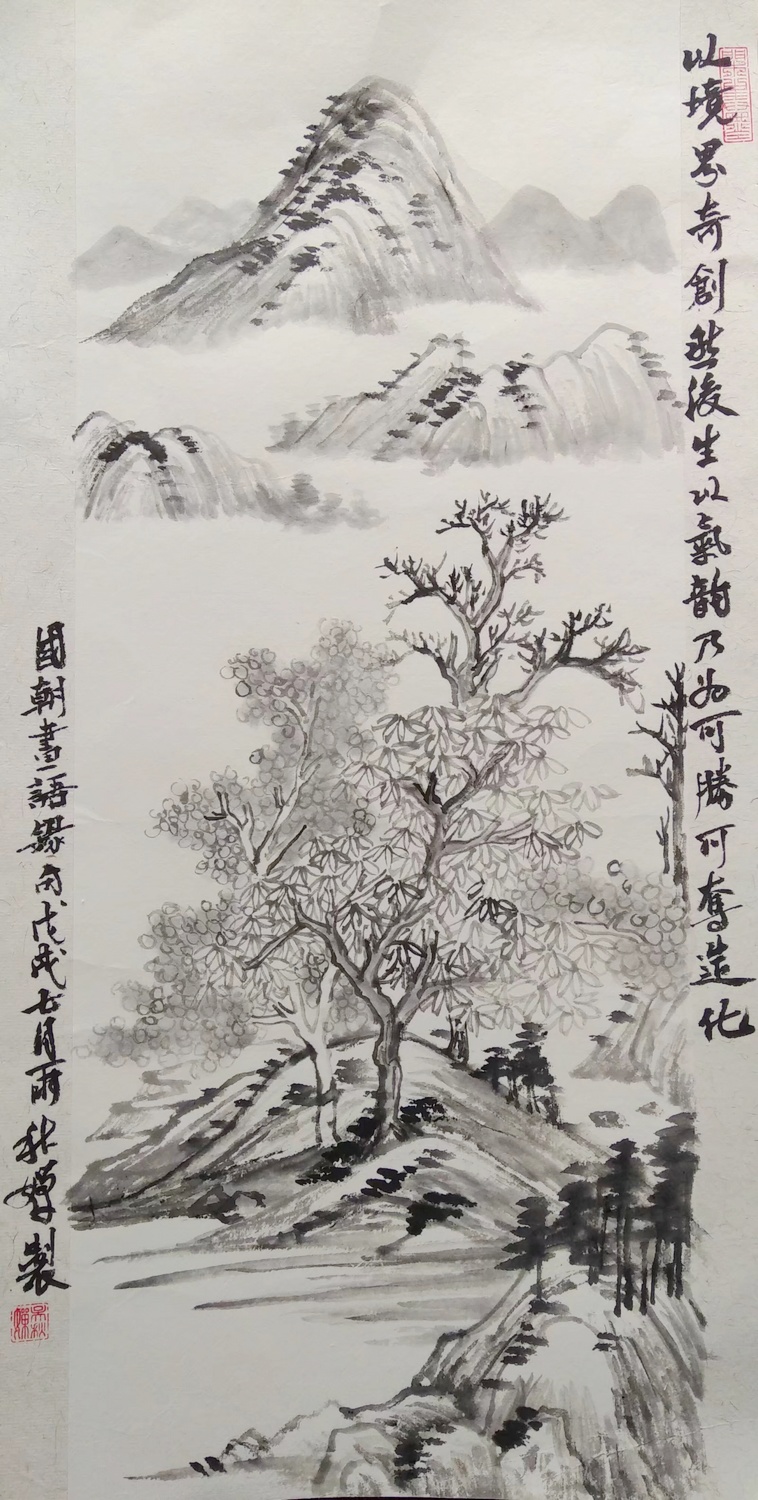 以境界奇創然後生以氣韵乃为可勝可奪造化
國朝畫語録句戊戌七月雨秋嬋製